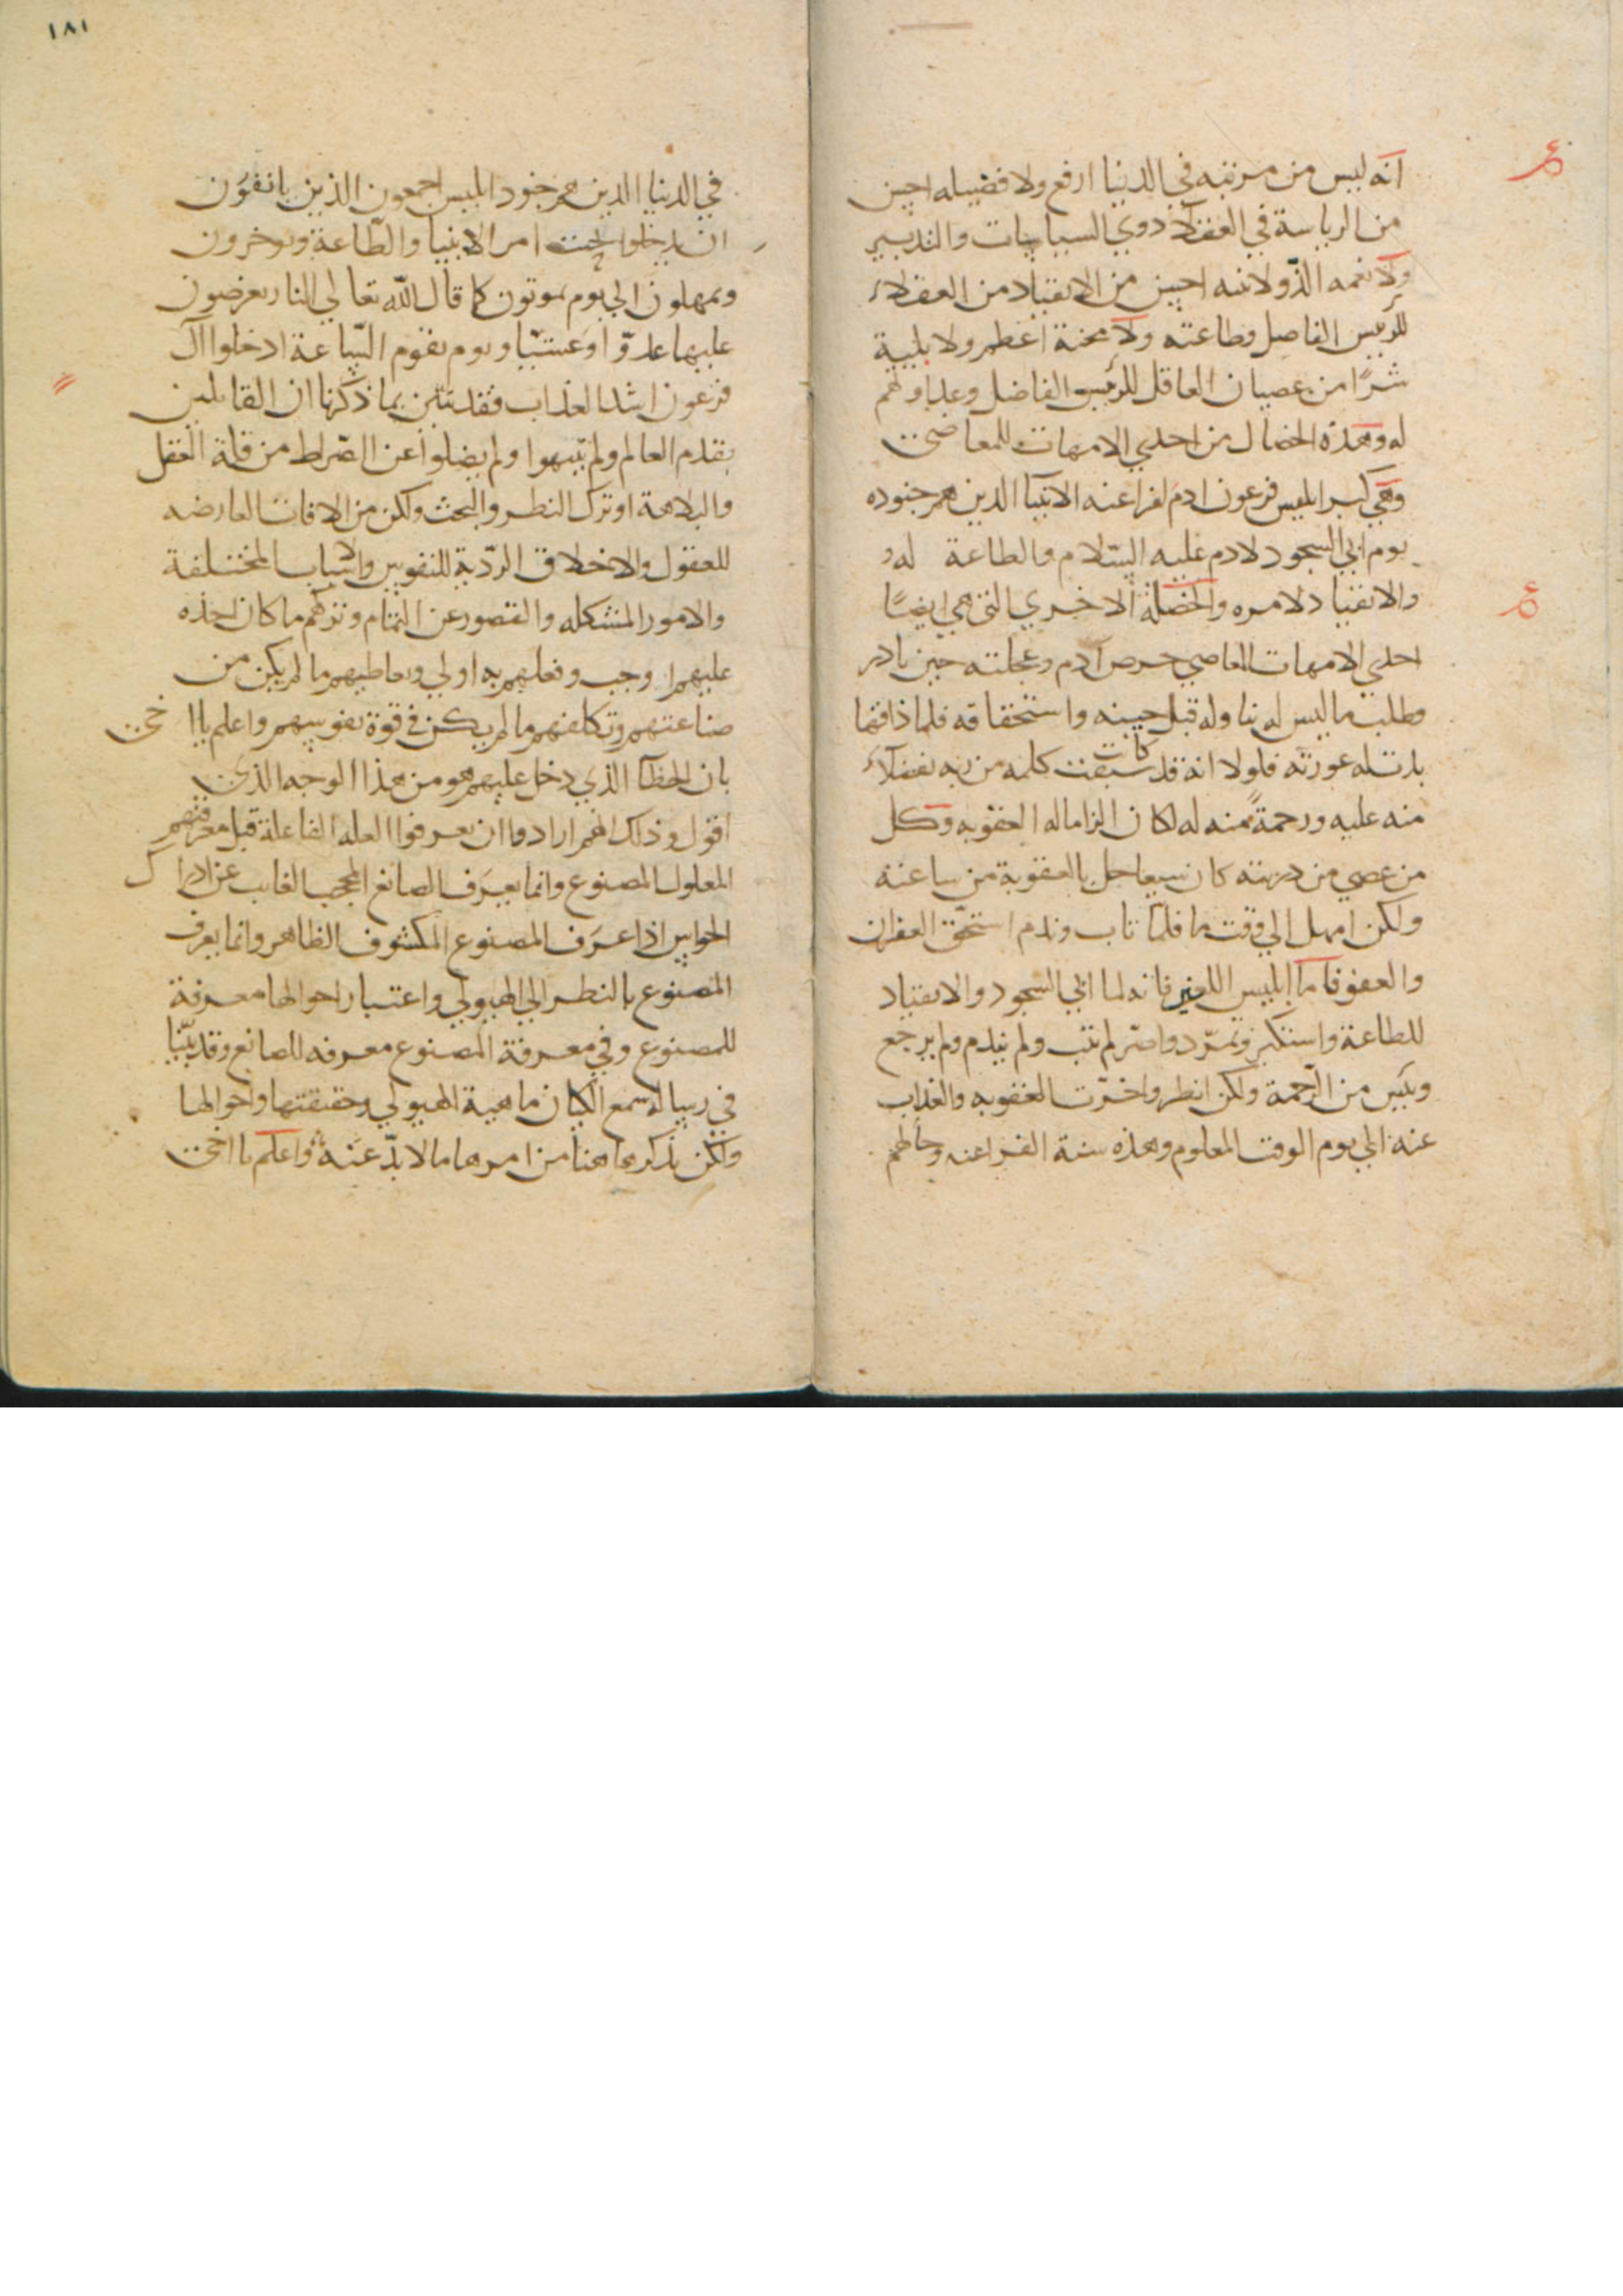 انه ليس من مرتبه في الدنيا ارفع ولا فضيله احسن
من الرياسة في العقلآ ذوي السياسات والتدبير
ولا نعمه الذ ولا نيه احسن من الانقياد من العقلاء
للرئيس الفاضل وطاعته ولا محنة اعظم ولا بلية
شرًا من عصيان العاقل للرئيس الفاضل وعداوتهم
له وهذه الخصال من احدي الامهات للمعاصي
وهي كبر ابليس فرعون ادم لفراعنه الانبيا الذين هم جنوده
يوم ابي السجود لادم عليه السلام والطاعة له و
والانقياد لامره والخصلة الاخري التي هي ايضًا
احدي الامهات المعاصي حرص آدم وعجلته حين بادر
وطلب ما ليس له تناوله قبل حينه واستحقاقه فلما ذاقها
بدت له عورته فلولا انه قد كانت سبقت كلمه من ربه تفضلآ
منه عليه ورحمةً منه له لكان الزاما له العقوبه وكل
من عصي من ذريته كان سيعاجل بالعقوبة من ساعته
ولكن امهل الي وقت ما فلما تاب وندم استحق الغفران
والعفو فاما ابليس اللعين فانه لما ابي السجود والانقياد
للطاعة واستكبر وتمرّد واصرّ لم يتب ولم يندم ولم يرجع
ويئس من الرحمة ولكن انظر واخرت العقوبه والعذاب
عنه الي يوم الوقت المعلوم وهذه سنة الفراعنه وحالهم
١٨١
في الدنيا الذين هم جنود ابليس اجمعون الذين يانفون
ان يدخلوا تحت امر الانبيا والطّاعة ويوخرون
ويمهلون الي يوم يموتون كما قال الله تعالي النار يعرضون
عليها غدوّا وعشيّا ويوم تقوم السّاعة ادخلوا آل
فرعون اشد العذاب فقد تبين بما ذكرنا ان القايلين
بقدم العالم ولم يتيهوا ولم يضلوا عن الصّراط من قلة العقل
والبلاهة او ترك النظر والبحث ولكن من الافات العارضه
للعقول والاخلاق الردّية للنفوس والاسباب المختلفة
والامور المشكله والقصور عن التمام وتركهم ما كان اخذه
عليهم اوجب وفعلهم به اولي وتعاطيهم ما لم يكن من
صناعتهم وتكلفهم ما لم يكن في قوة نفوسهم واعلم يا ا خي
بان الخطآ الذي دخل عليهم هو من هذا الوجه الذي
اقول وذلك انهم ارادوا ان يعرفوا العله الفاعلة قبل معرفتهم
المعلول المصنوع وانما يعرف الصانع المحجب الغايب عن ادراك
الحواس اذا عرف المصنوع المكشوف الظاهر وانما يعرف
المصنوع بالنظر الي الهيولي واعتبار احوالها معرفة
للمصنوع وفي معرفة المصنوع معرفه للصانع وقد بيّنا
في رسالة سمع الكيان ماهية الهيولي وحقيقتها واحوالها
ولكن نذكر هاهنا من امرها ما لا بدّ عنه واعلم يا اخي